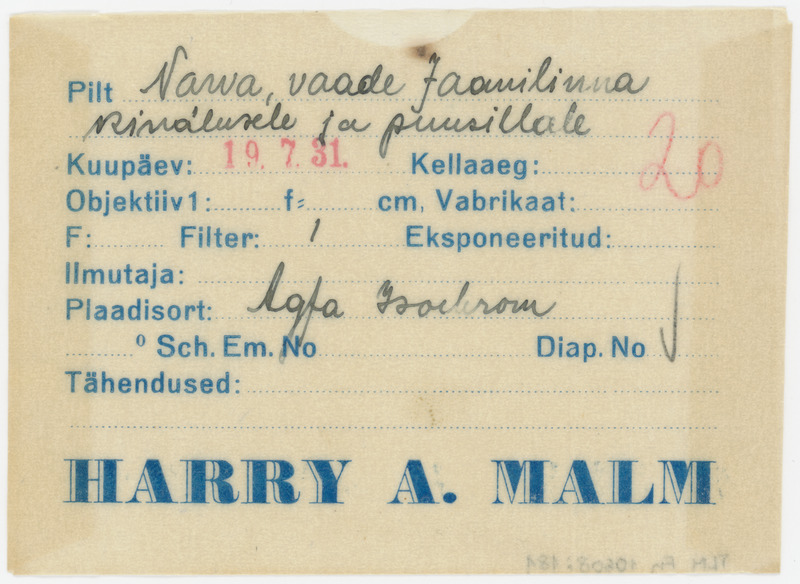 Pilt Narva, vaade Jaanilinna
kindlusele ja puusillale
Kuupäev: 19. 7. 31. Kellaaeg: 20
Objektiiv 1: f= cm, Vabrikaat:
F: Filter: 1 Eksponeeritud:
Ilmutaja:
Plaadisort: Agfa Isochrom
° Sch. Em. No Diap. No
Tähendused:
HARRY A. MALM
TLM Fn 10608:181